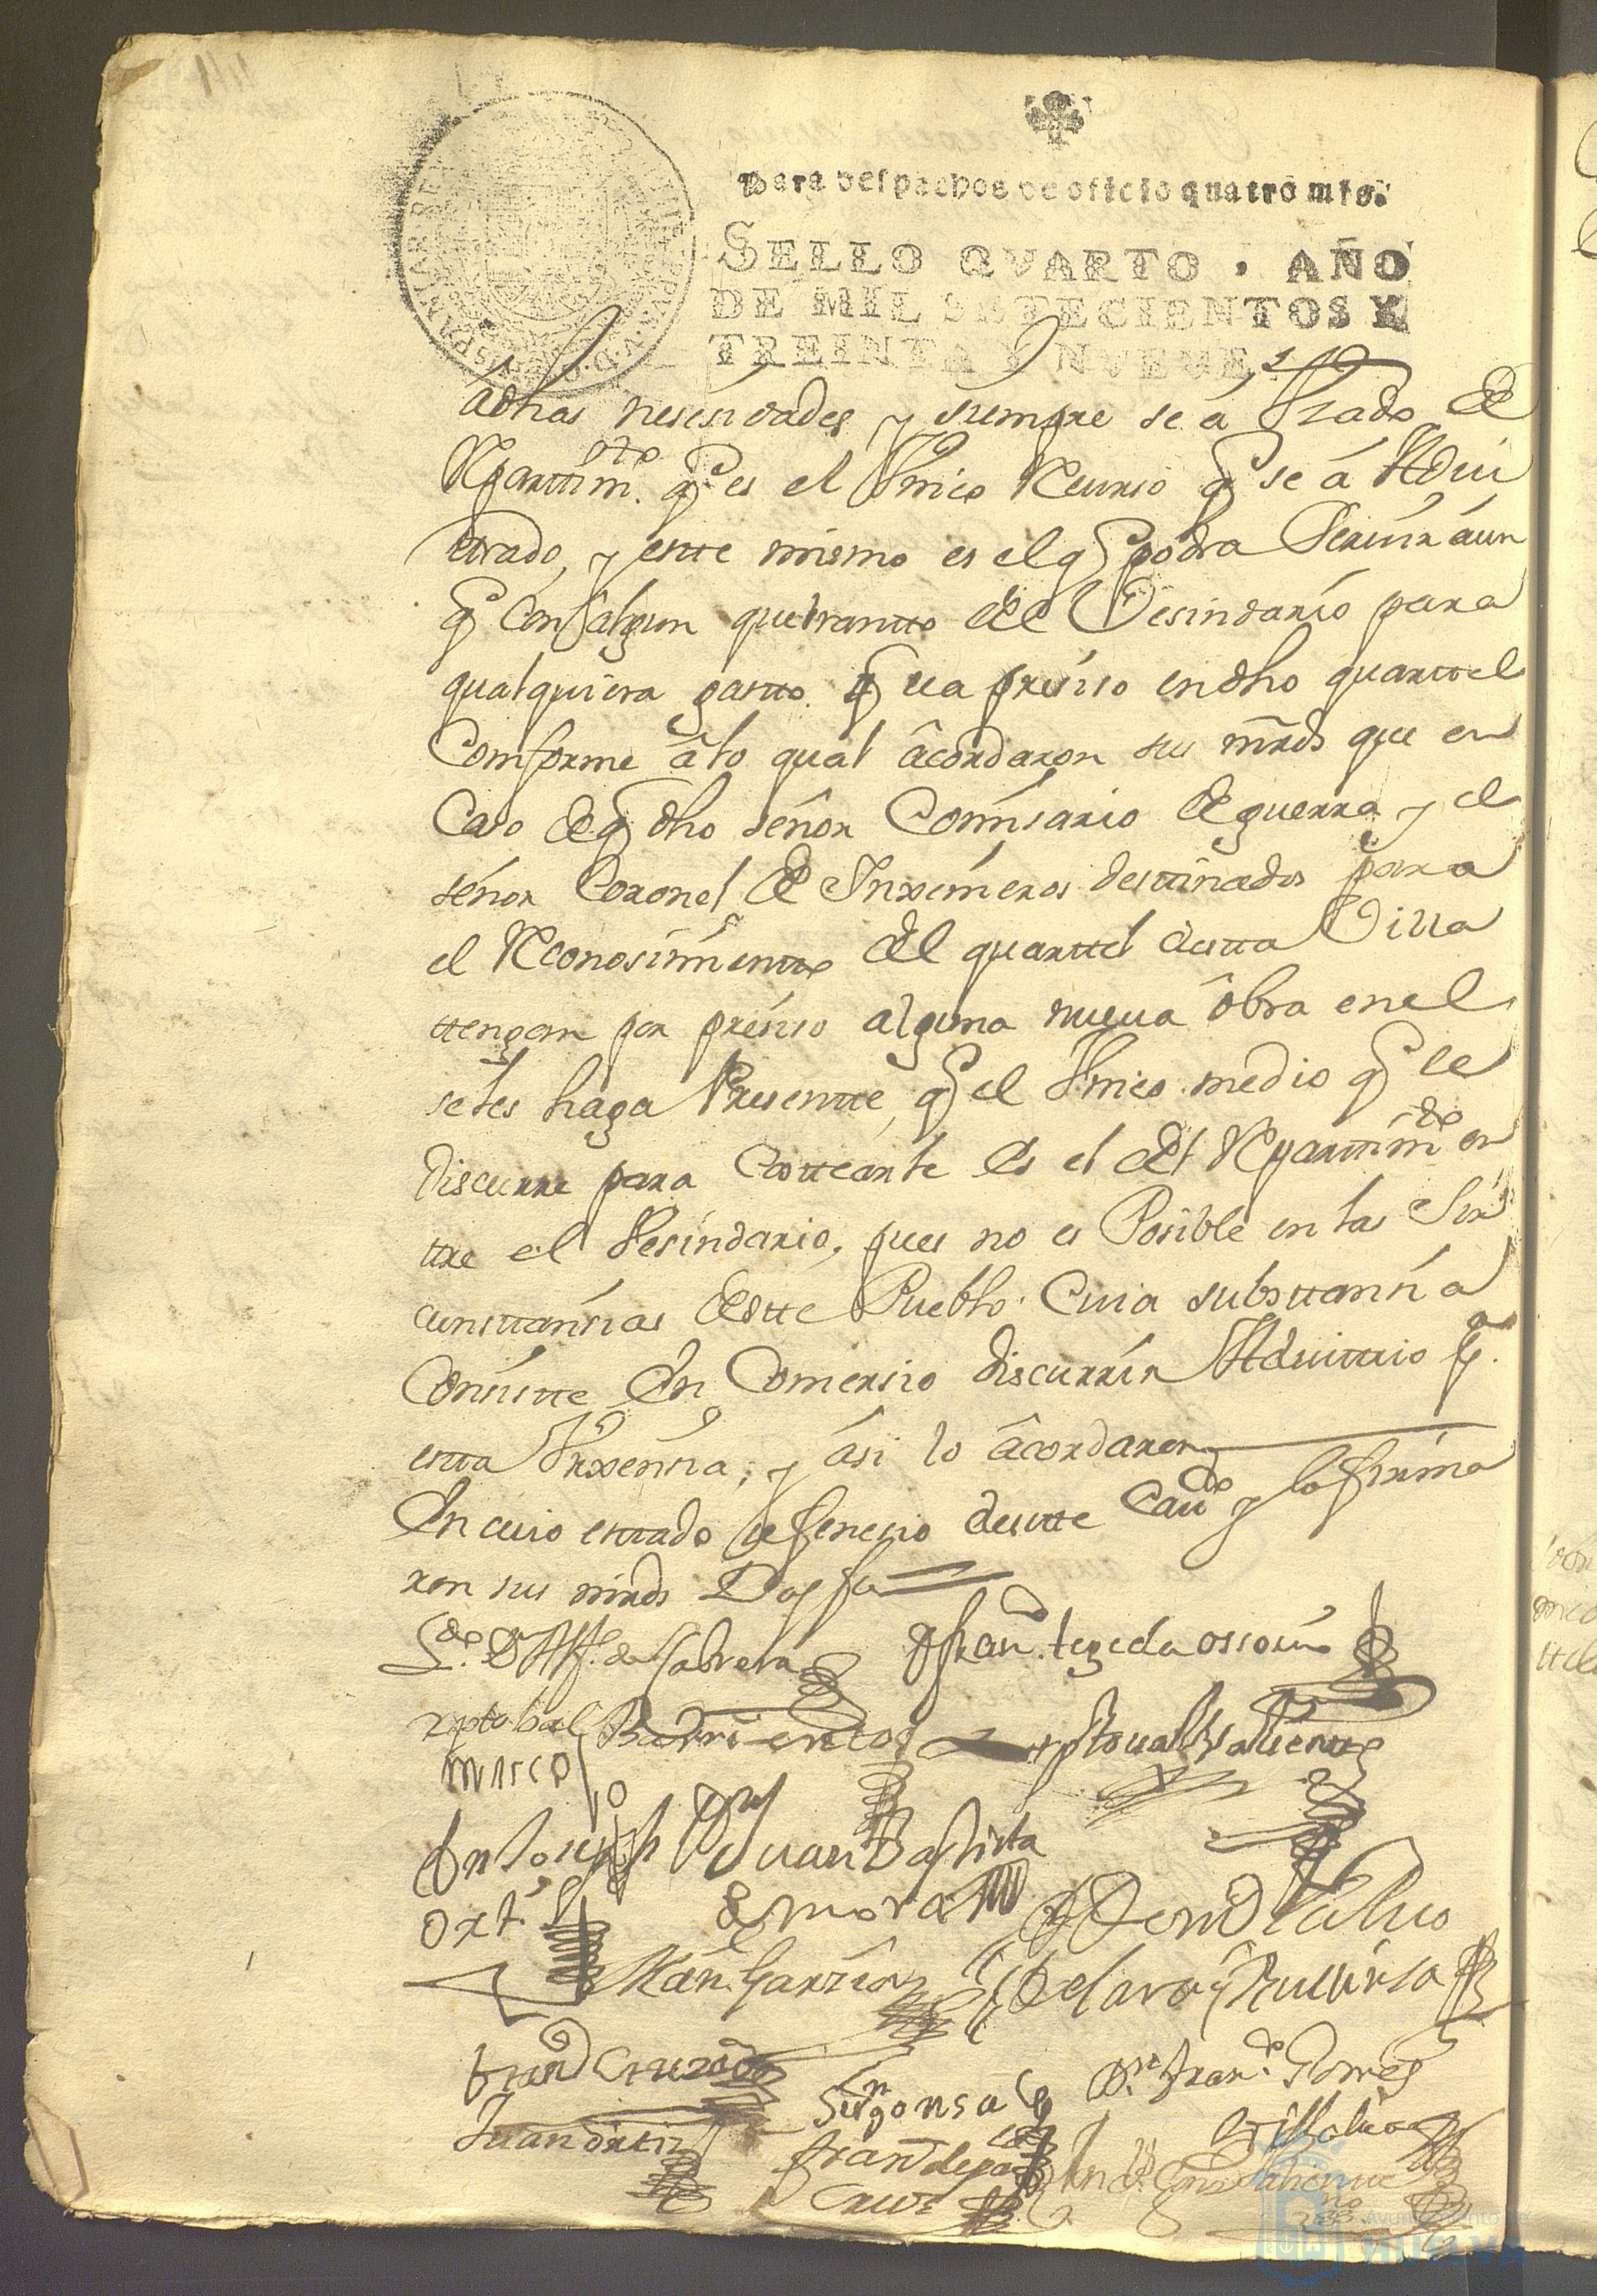 Para despachos de oficio quatro mrs.
SELLO QVARTO, AÑO
DE MIL SETECIENTOS Y
TREINTA Y NVEVE.
á dhas nesesidades y siempre se á Vzado de
Repartim.to q es el Vnico Recurso q se á Advi
trado, y estte mismo es el q podra Servir aun
q con algun quebrantto del Vesindario para
qualquiera gastto q sea presiso en dho quarttel
Comforme á lo qual ácordaron sus mrds que en
Caso de q dho señor Comisario de guerra y el
señor Coronel de Inxenieros desttinados para
el Reconosimientto del quarttel destta Villa
ttengan por presiso alguna nueua obra en el
se les haga Presentte, q el Vnico medio q se
discurre para Costtearle es el del Repartim.to en
ttre el Vesindario, pues no es Posible en las Sir
cunsttansias destte Pueblo Cuia substtansia
Consistte En Comersio discurrir Advittrio p.a
estta Vrxensia, y ási lo ácordaron
En cuio esttado se fenesio destte Cau.do y lo firma
ron sus mrds Doy fee
L.do D. Alf. de Cabrera
D Fran. texeda ossorio
xptobal Barrientos
xptoual Valiente
marco
Antt Joseph
Juan Baptista
ortis
de mora
Man. Garzia
de Lara y
Fran.co Cruzado
Gonsales
D.n Fran.co Gomes
Juan ortiz
Villalua
Fran.co de la
Cruz
no
Ayuntamiento de
HUELVA